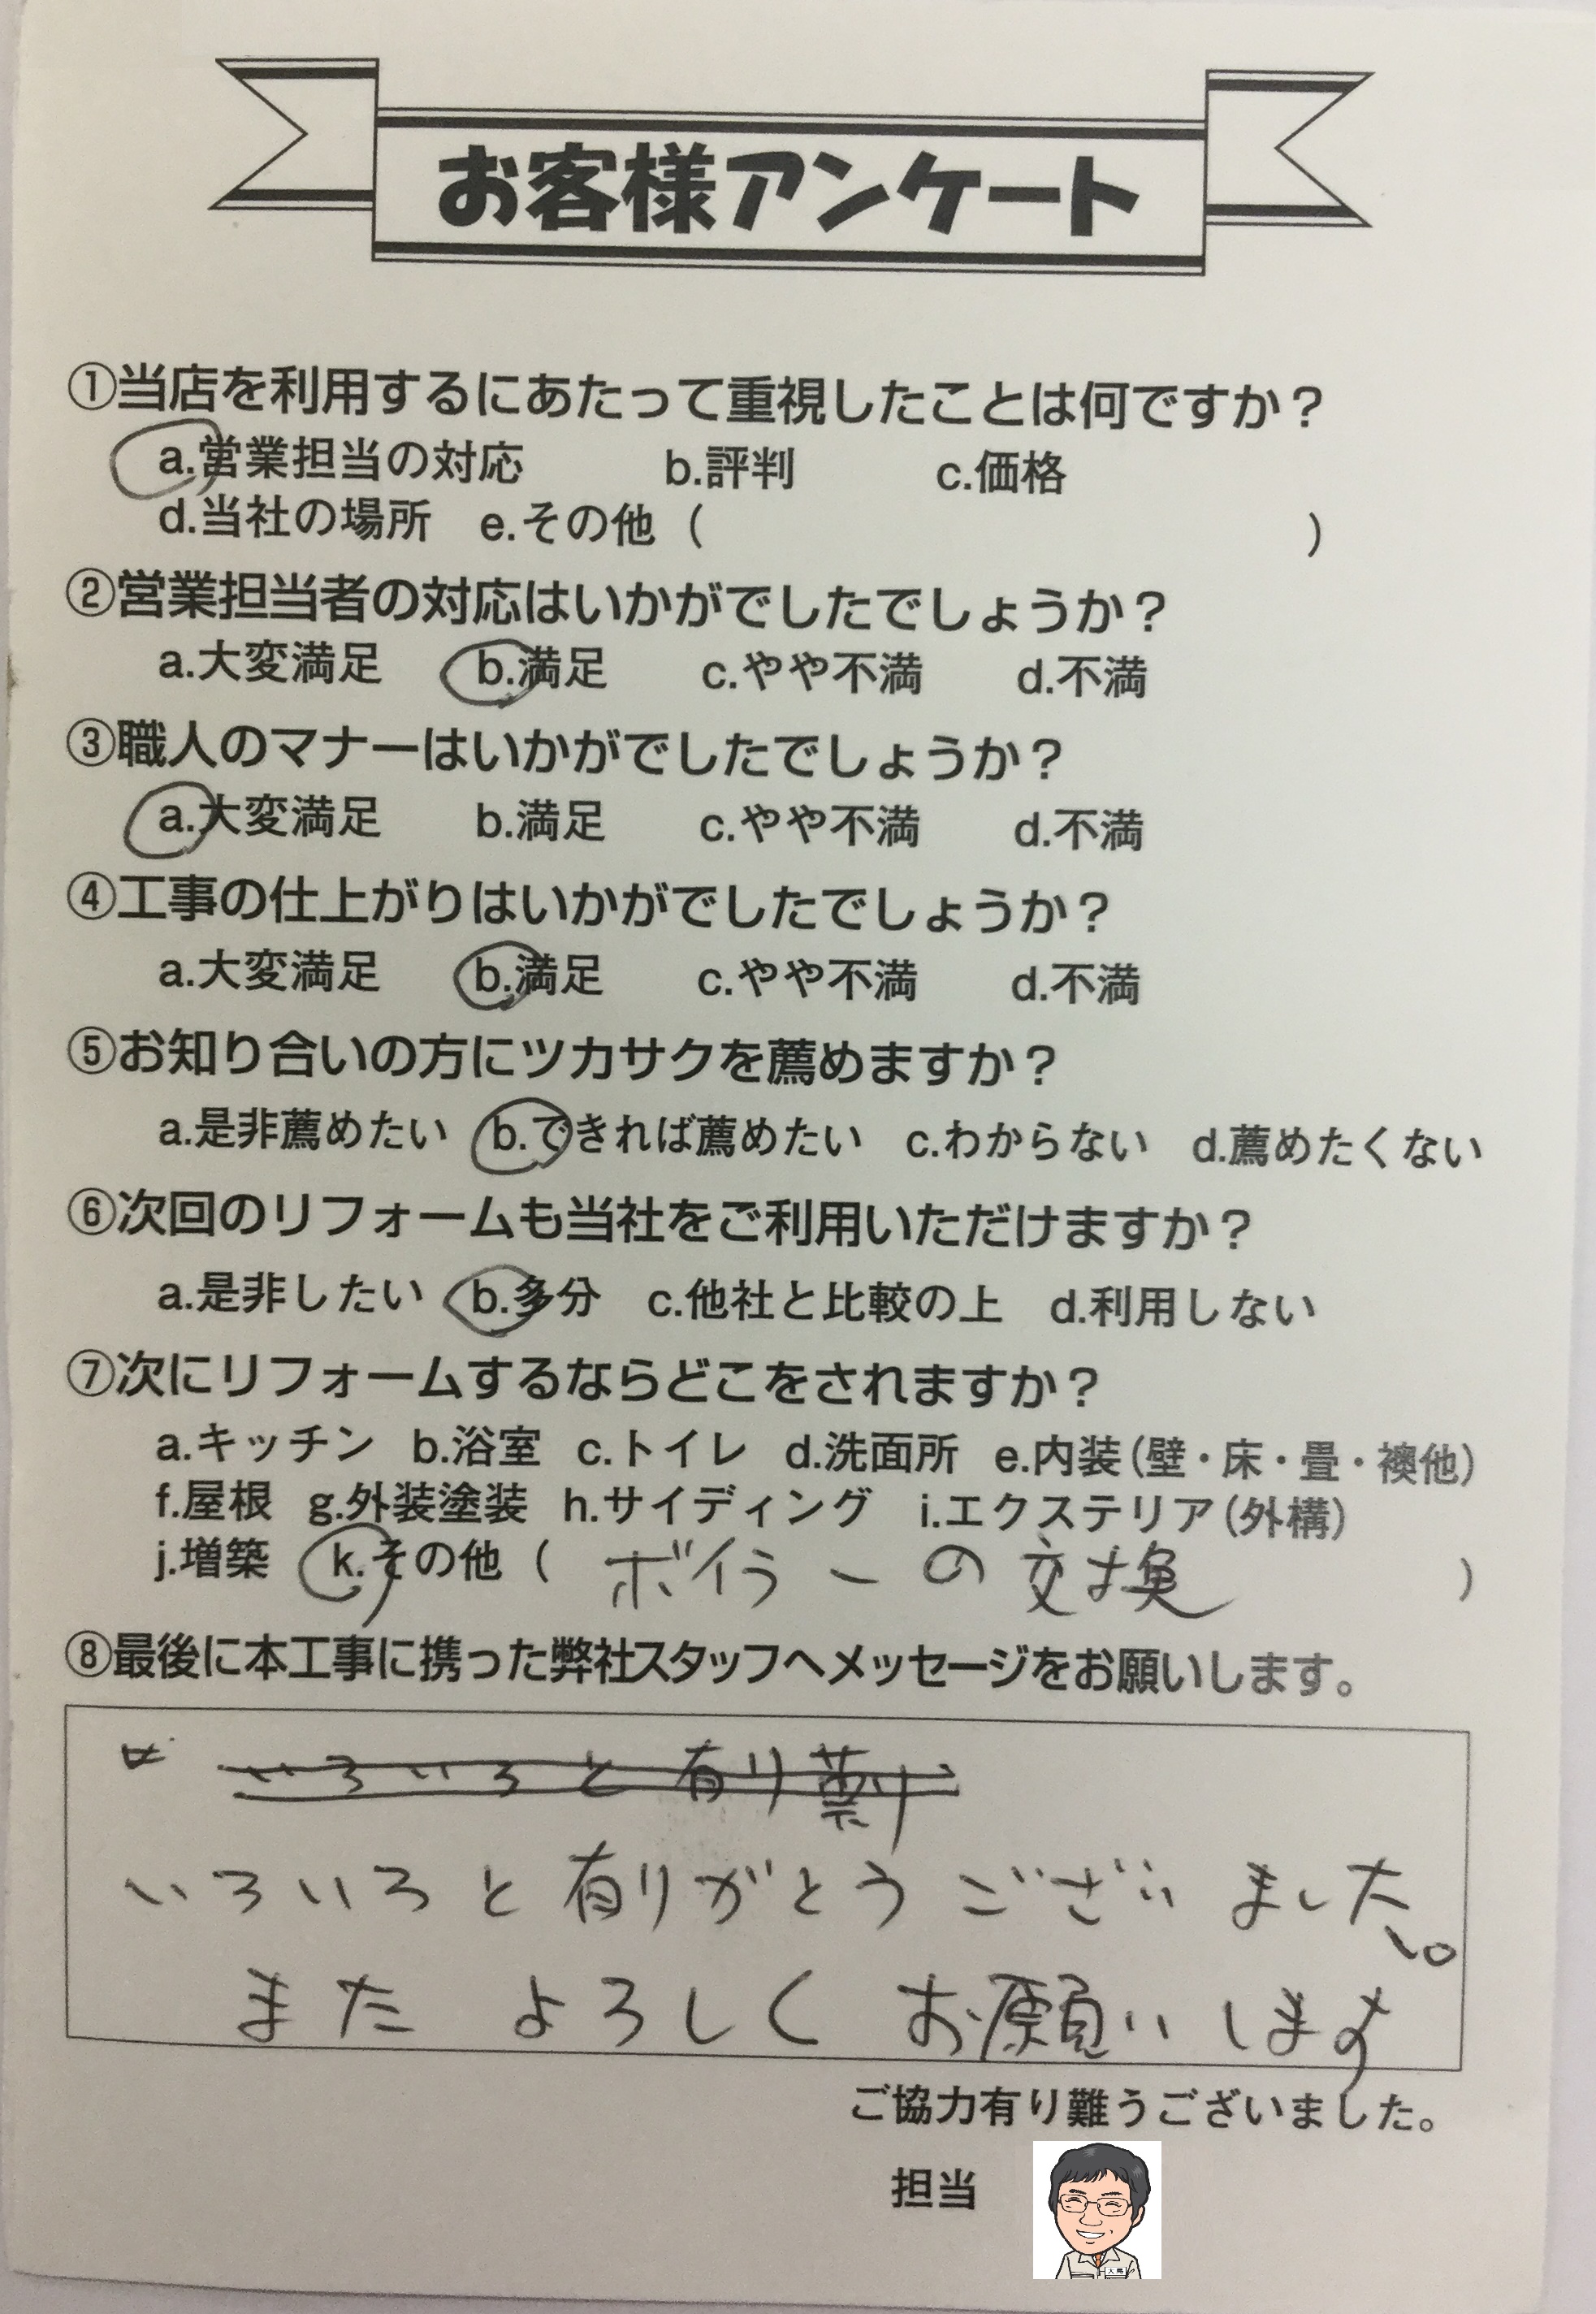 お客様アンケート
①当店を利用するにあたって重視したことは何ですか？
a.営業担当の対応 b.評判 c.価格
d.当社の場所 e.その他（ ）
②営業担当者の対応はいかがでしたでしょうか？
a.大変満足 b.満足 c.やや不満 d.不満
③職人のマナーはいかがでしたでしょうか？
a.大変満足 b.満足 c.やや不満 d.不満
④工事の仕上がりはいかがでしたでしょうか？
a.大変満足 b.満足 c.やや不満 d.不満
⑤お知り合いの方にツカサクを薦めますか？
a.是非薦めたい b.できれば薦めたい c.わからない d.薦めたくない
⑥次回のリフォームも当社をご利用いただけますか？
a.是非したい b.多分 c.他社と比較の上 d.利用しない
⑦次にリフォームするならどこをされますか？
a.キッチン b.浴室 c.トイレ d.洗面所 e.内装（壁・床・畳・襖他）
f.屋根 g.外装塗装 h.サイディング i.エクステリア（外構）
j.増築 k.その他（ ボイラーの交換 ）
⑧最後に本工事に携った弊社スタッフへメッセージをお願いします。
いろいろと有り
いろいろと有りがとうございました。
またよろしくお願いします
ご協力有り難うございました。
担当